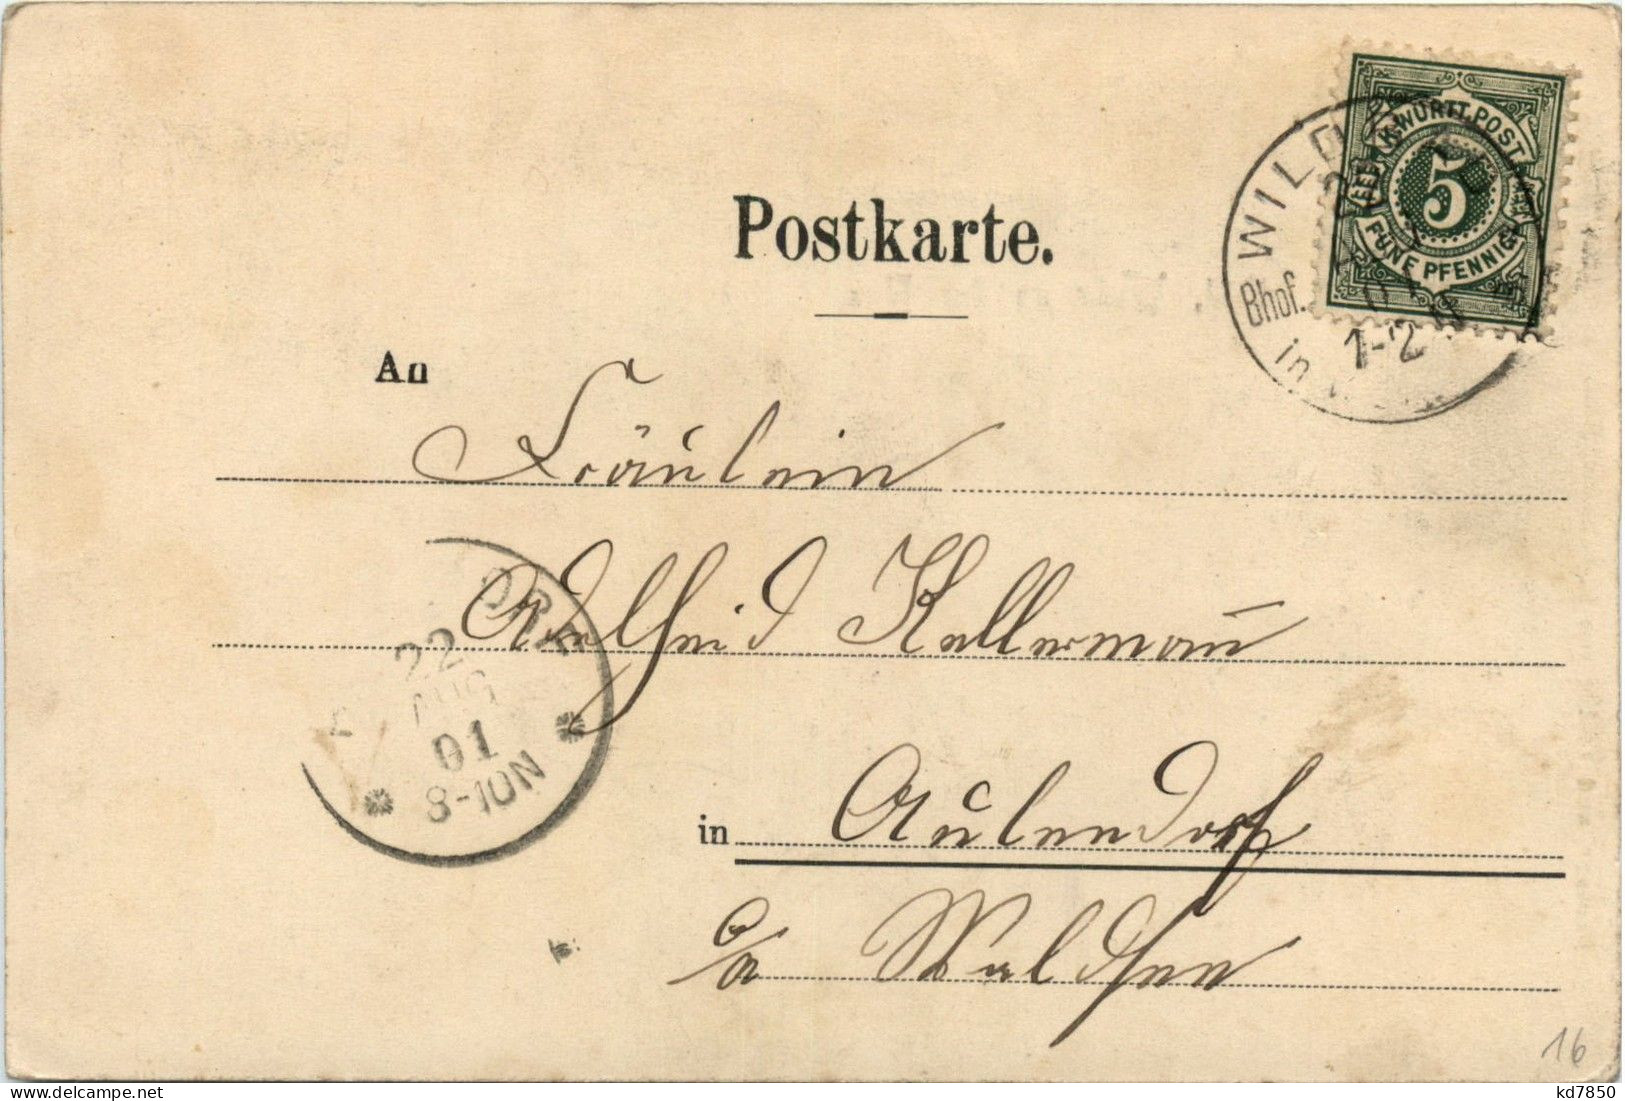 Postkarte.
K. WÜRTT. POST
5
FÜNF PFENNIG
WILD
Bhof.
in
1-2
An
Fräulein
Adelheid Kellermañ
22
AUG
01
8-10N
in Aulendorf
a/ Waldsee
16
kd7850